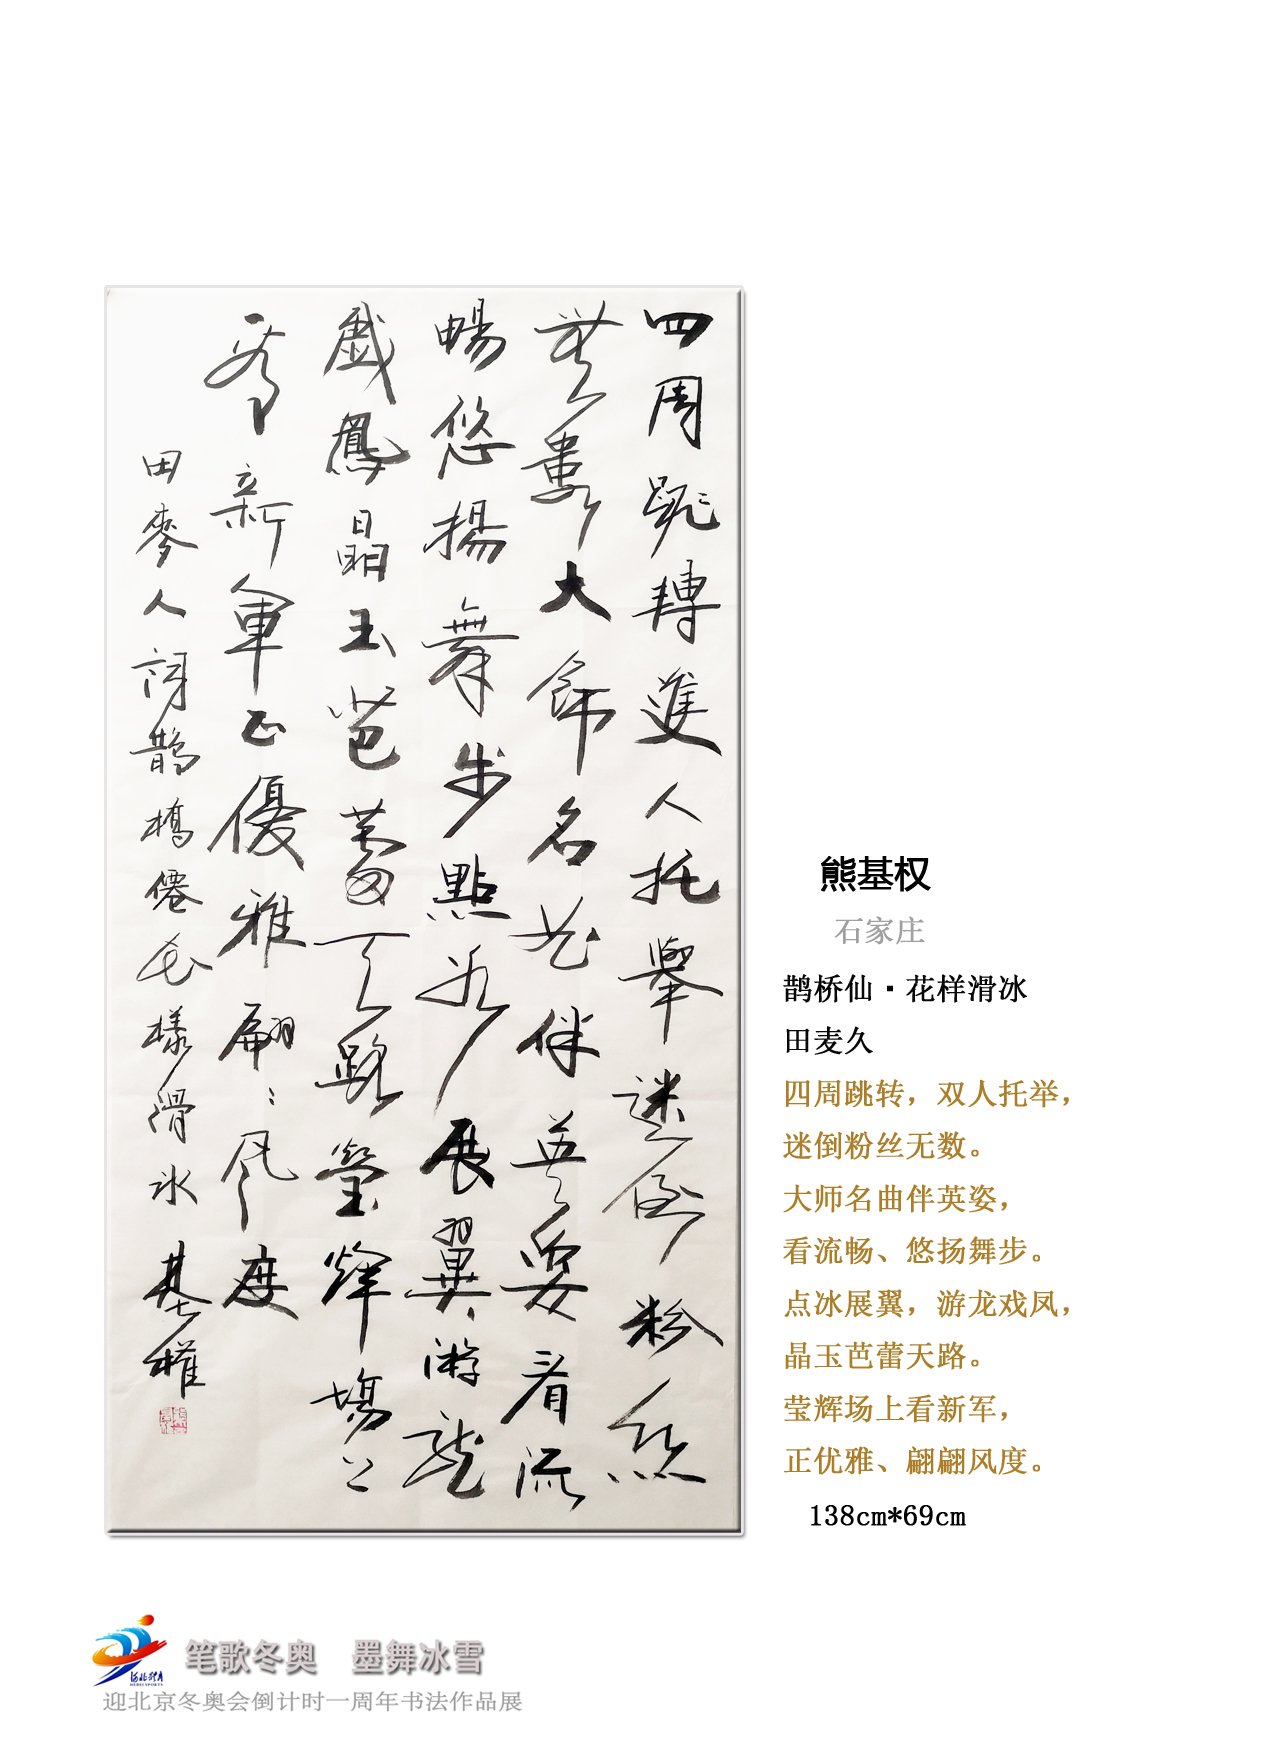 四周跳轉雙人托舉迷倒粉絲
無數大師名曲伴英姿看流
暢悠揚舞步點冰展翼游龍
戲鳳晶玉芭蕾天路瑩輝場上
看新軍正優雅翩〻風度
田麥久詞鵲橋僊花樣滑冰 基權
熊基权
石家庄
鹊桥仙·花样滑冰
田麦久
四周跳转，双人托举，
迷倒粉丝无数。
大师名曲伴英姿，
看流畅、悠扬舞步。
点冰展翼，游龙戏凤，
晶玉芭蕾天路。
莹辉场上看新军，
正优雅、翩翩风度。
138cm*69cm
河北体育
HEBEI SPORTS
笔歌冬奥 墨舞冰雪
迎北京冬奥会倒计时一周年书法作品展